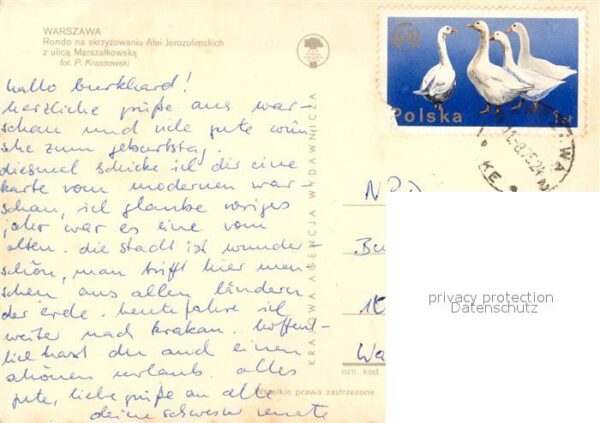 WARSZAWA
Rondo na skrzyżowaniu Alei Jerozolimskich
z ulicą Marszałkowską
fot. P. Krassowski
hallo burkhard!
herzliche grüße aus war-
schau und viele gute wün-
sche zum geburtstag.
diesmal schicke ich dir eine
karte vom modernen war-
schau, ich glaube voriges
jahr war es eine vom
alten. die stadt ist wunder-
schön, man trifft hier men
schen aus allen ländern
der erde. heute fahre ich
weiter nach krakau. hoffent-
lich hast du auch einen
schönen urlaub. alles
gute, liebe grüße an alle
deine schwester renate
KRAJOWA AGENCJA WYDAWNICZA
Polska
1zł
privacy protection
Datenschutz
ozn kod.
Wszelkie prawa zastrzeżone